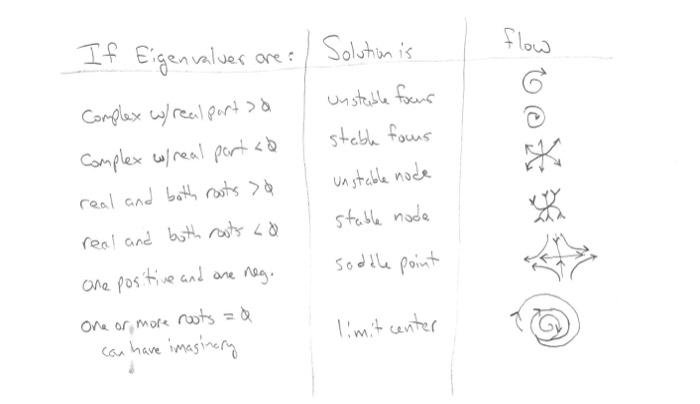 If Eigenvalues are: Solution is flow
Complex w/real part > 0 unstable focus
Complex w/real part < 0 stable focus
real and both roots > 0 unstable node
real and both roots < 0 stable node
one positive and one neg. saddle point
one or more roots = 0 limit center
can have imaginary